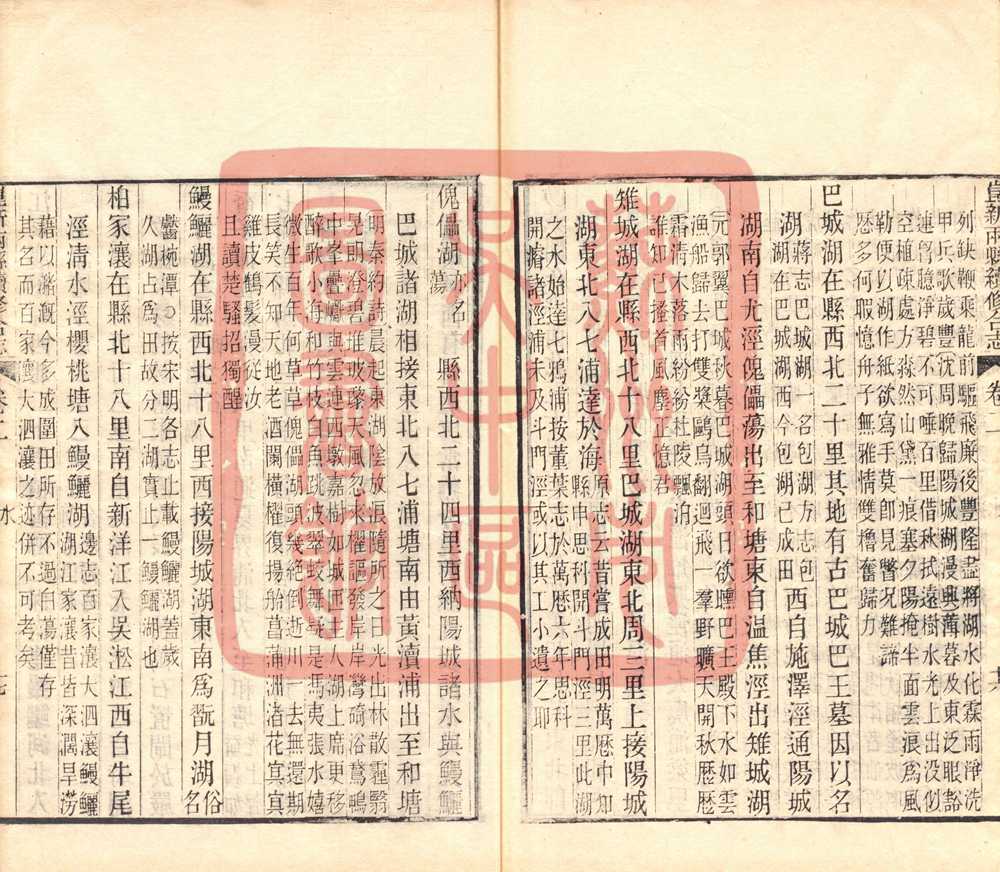 列缺鞭乘龍前驅飛廉後豐隆盡將湖水化霖雨淨洗
甲兵歌歲豐沈周晚歸陽城湖漫興薄暮及東泛眼豁
連胷臆淨碧不可唾百里借秋拭遠樹水光上出没似
空植疎處方淼然山黛一痕塞夕陽掩半面雲浪爲風
勒便以湖作紙欲寫手莫卽見瞥況難諦
歷多何暇憶舟子無雅情雙櫓奮歸力
巴城湖在縣西北二十里其地有古巴城巴王墓因以名
湖蔣志巴城湖一名包湖方志包
湖在巴城湖西今包湖已成田西自施澤涇通陽城
湖南自尤涇傀儡蕩出至和塘東自温焦涇出雉城湖
元郭翼巴城秋暮巴城湖頭日欲曛巴王殿下水如雲
漁船歸去打雙槳鷗鳥翻迴飛一羣野曠天開秋歷歷
霜清木落雨紛紛杜陵飄泊
誰知己搔首風塵正憶君
雉城湖在縣西北十八里巴城湖東北周三里上接陽城
湖東北八七浦達於海原志云昔嘗成田明萬歷中知
縣申思科開斗門涇三里此湖
之水始達七鴉浦按董葉志於萬歷六年思科
開濬諸涇浦未及斗門涇或以其工小遺之耶
傀儡湖亦名
蕩縣西北二十四里西納陽城諸水與鰻鱺
巴城諸湖相接東北八七浦塘南由黃瀆浦出至和塘
明秦約詩晨起東湖陰放浪隨所之日光出林散霾翳
晃明澄碧唯玻黎天風忽來櫂謳發岸岸灣碕浴鷺鴨
中峯疊巘與雲連西墩嘉樹如城匝主人湖上席更移
醉歌小海和竹枝白魚跳波翠蛟舞疑是馮夷張水嬉
微生百年何草草傀儡湖頭幾絕倒逝川一去無還期
長笑不知天地老酒闌橫櫂復揚舲菖蒲洲渚花寘寘
雞皮鶴髮漫從汝
且讀楚騷招獨醒
鰻鱺湖在縣西北十八里西接陽城湖東南爲翫月湖俗
名
鬱椀潭○按宋明各志止載鰻鱺湖蓋歲
久湖占爲田故分二湖賁止一鰻鱺湖也
柏家瀼在縣北十八里南自新洋江入吳淞江西自牛尾
涇清水涇櫻桃塘入鰻鱺湖邊志百家瀼大泗瀼鰻鱺
湖江家瀼昔皆深濶旱澇
藉以瀦溉今多成圍田所存不過白蕩僅存
其名而百家瀼大泗瀼之迹併不可考矣